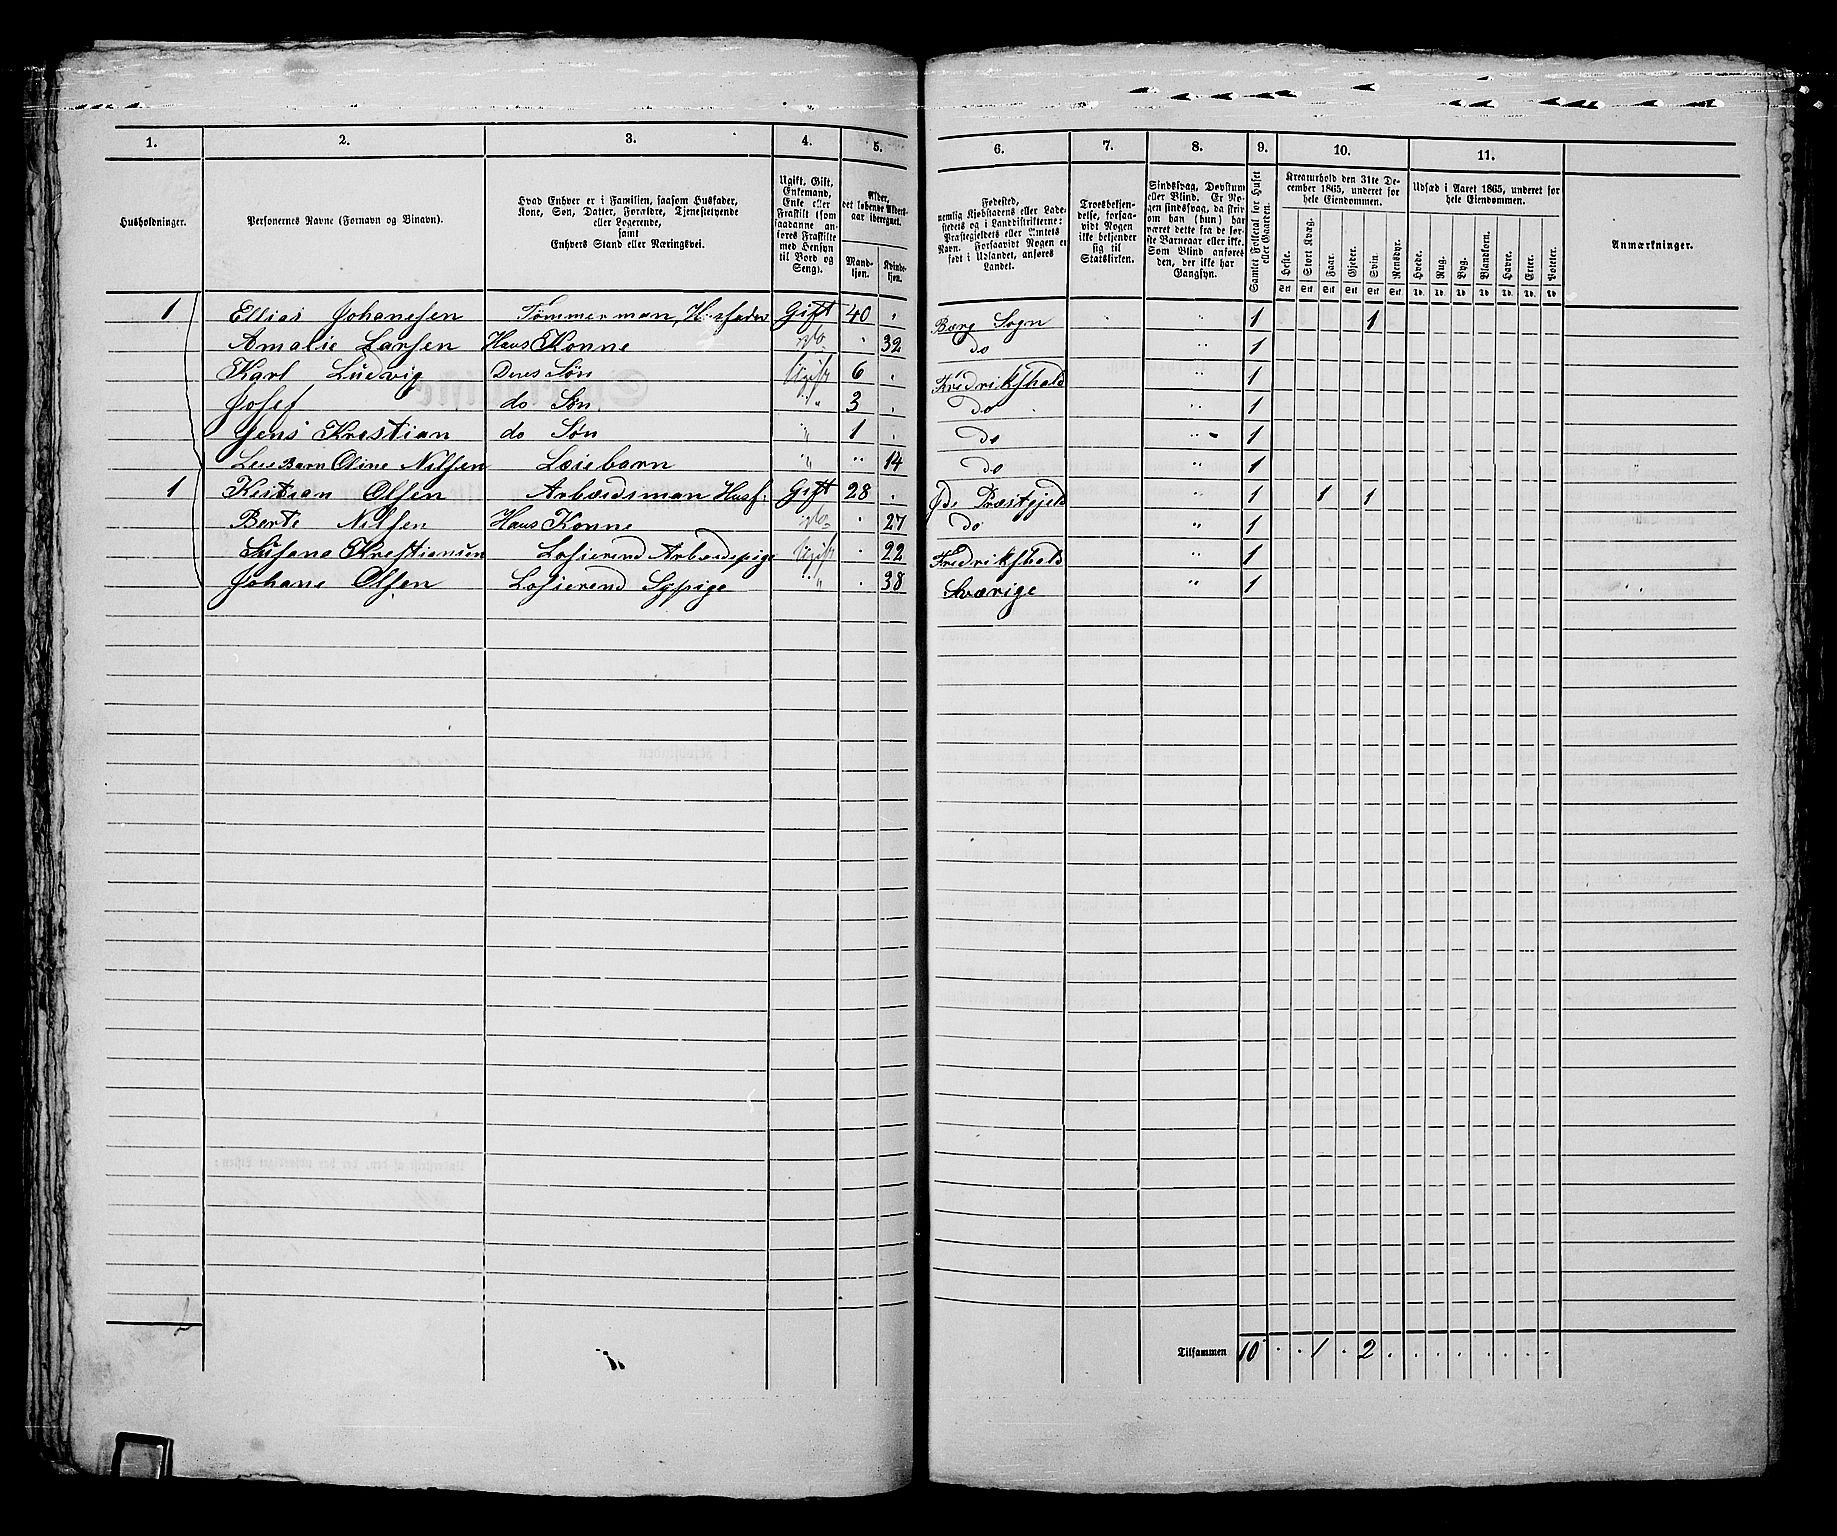 1. 2. 3. 4. 5. 6. 7. 8. 9. 10. 11.
Husholdninger.
Personernes Navne (Fornavn og Tilnavn).
Hvad Enhver er i Familien, saasom Husfader,
Kone, Søn, Datter, Forældre, Tjenestetyende
eller Logerende,
samt
Enhvers Stand eller Næringsvei.
Ugift, Gift,
Enkemand,
Enke eller
Fraskilt (som
saadanne an-
føres Fraskilte
med Hensyn
til Bord og
Seng).
Alder,
det løbende Alders-
aar iberegnet.
Mand-
kjøn.
Kvinde-
kjøn.
Fødested,
nemlig Kjøbstadens eller Lade-
stedets og i Landdistrikterne:
Præstegjeldets eller Amtets
Navn. Forsaavidt Nogen er
født i Udlandet, anføres
Landet.
Troesbekjen-
delse, forsaa-
vidt Nogen
ikke bekjender
sig til
Statskirken.
Sindssvag, Døvstum
eller Blind. Er No-
gen sindssvag, da skriv
om han (hun) har
været dette fra de før-
ste Barneaar eller ikke.
Som Blind anføres
den, der ikke har
Gangsyn.
Samlet Folketal for Huset
eller Gaarden.
Kreaturhold den 31te De-
cember 1865, underet for
hele Eiendommen.
Heste. Stort Kvæg. Faar. Gjeder. Svin. Rensdyr.
Stk Stk Stk Stk Stk Stk
Udsæd i Aaret 1865, underet for
hele Eiendommen.
Hvede. Rug. Byg. Blandkorn. Havre. Erter. Poteter.
Td. Td. Td. Td. Td. Td. Td.
Anmærkninger.
1 Ellias Johanesen Tömmerman, Husfader Gift 40 " Bærg Sogn " " 1 1
Amalie Larsen Hans Konne do " 32 do " 1
Karl Ludvig Deres Søn Ugift 6 . Fredrikshald " 1
Josef do Søn " 3 . Do " 1
Jens Krestian do Søn " 1 . Do " 1
Leie Barn Oline Nilsen Læiebarn " " 14 Do " 1
1 Kristian Olsen Arbeidsman Husf: Gift 28 . Præstgjeld " 1 1 1
Berte Nilsen Hans Konne do " 27 Do " 1
Susana Krestiansen Losierend Arbeidspige Ugift " 22 Fredrikshald " 1
Johane Olsen Losierend Sypige " . 38 Sværige " 1
2
Tilsammen 10 . . 1 . 2 . . . . . . . .